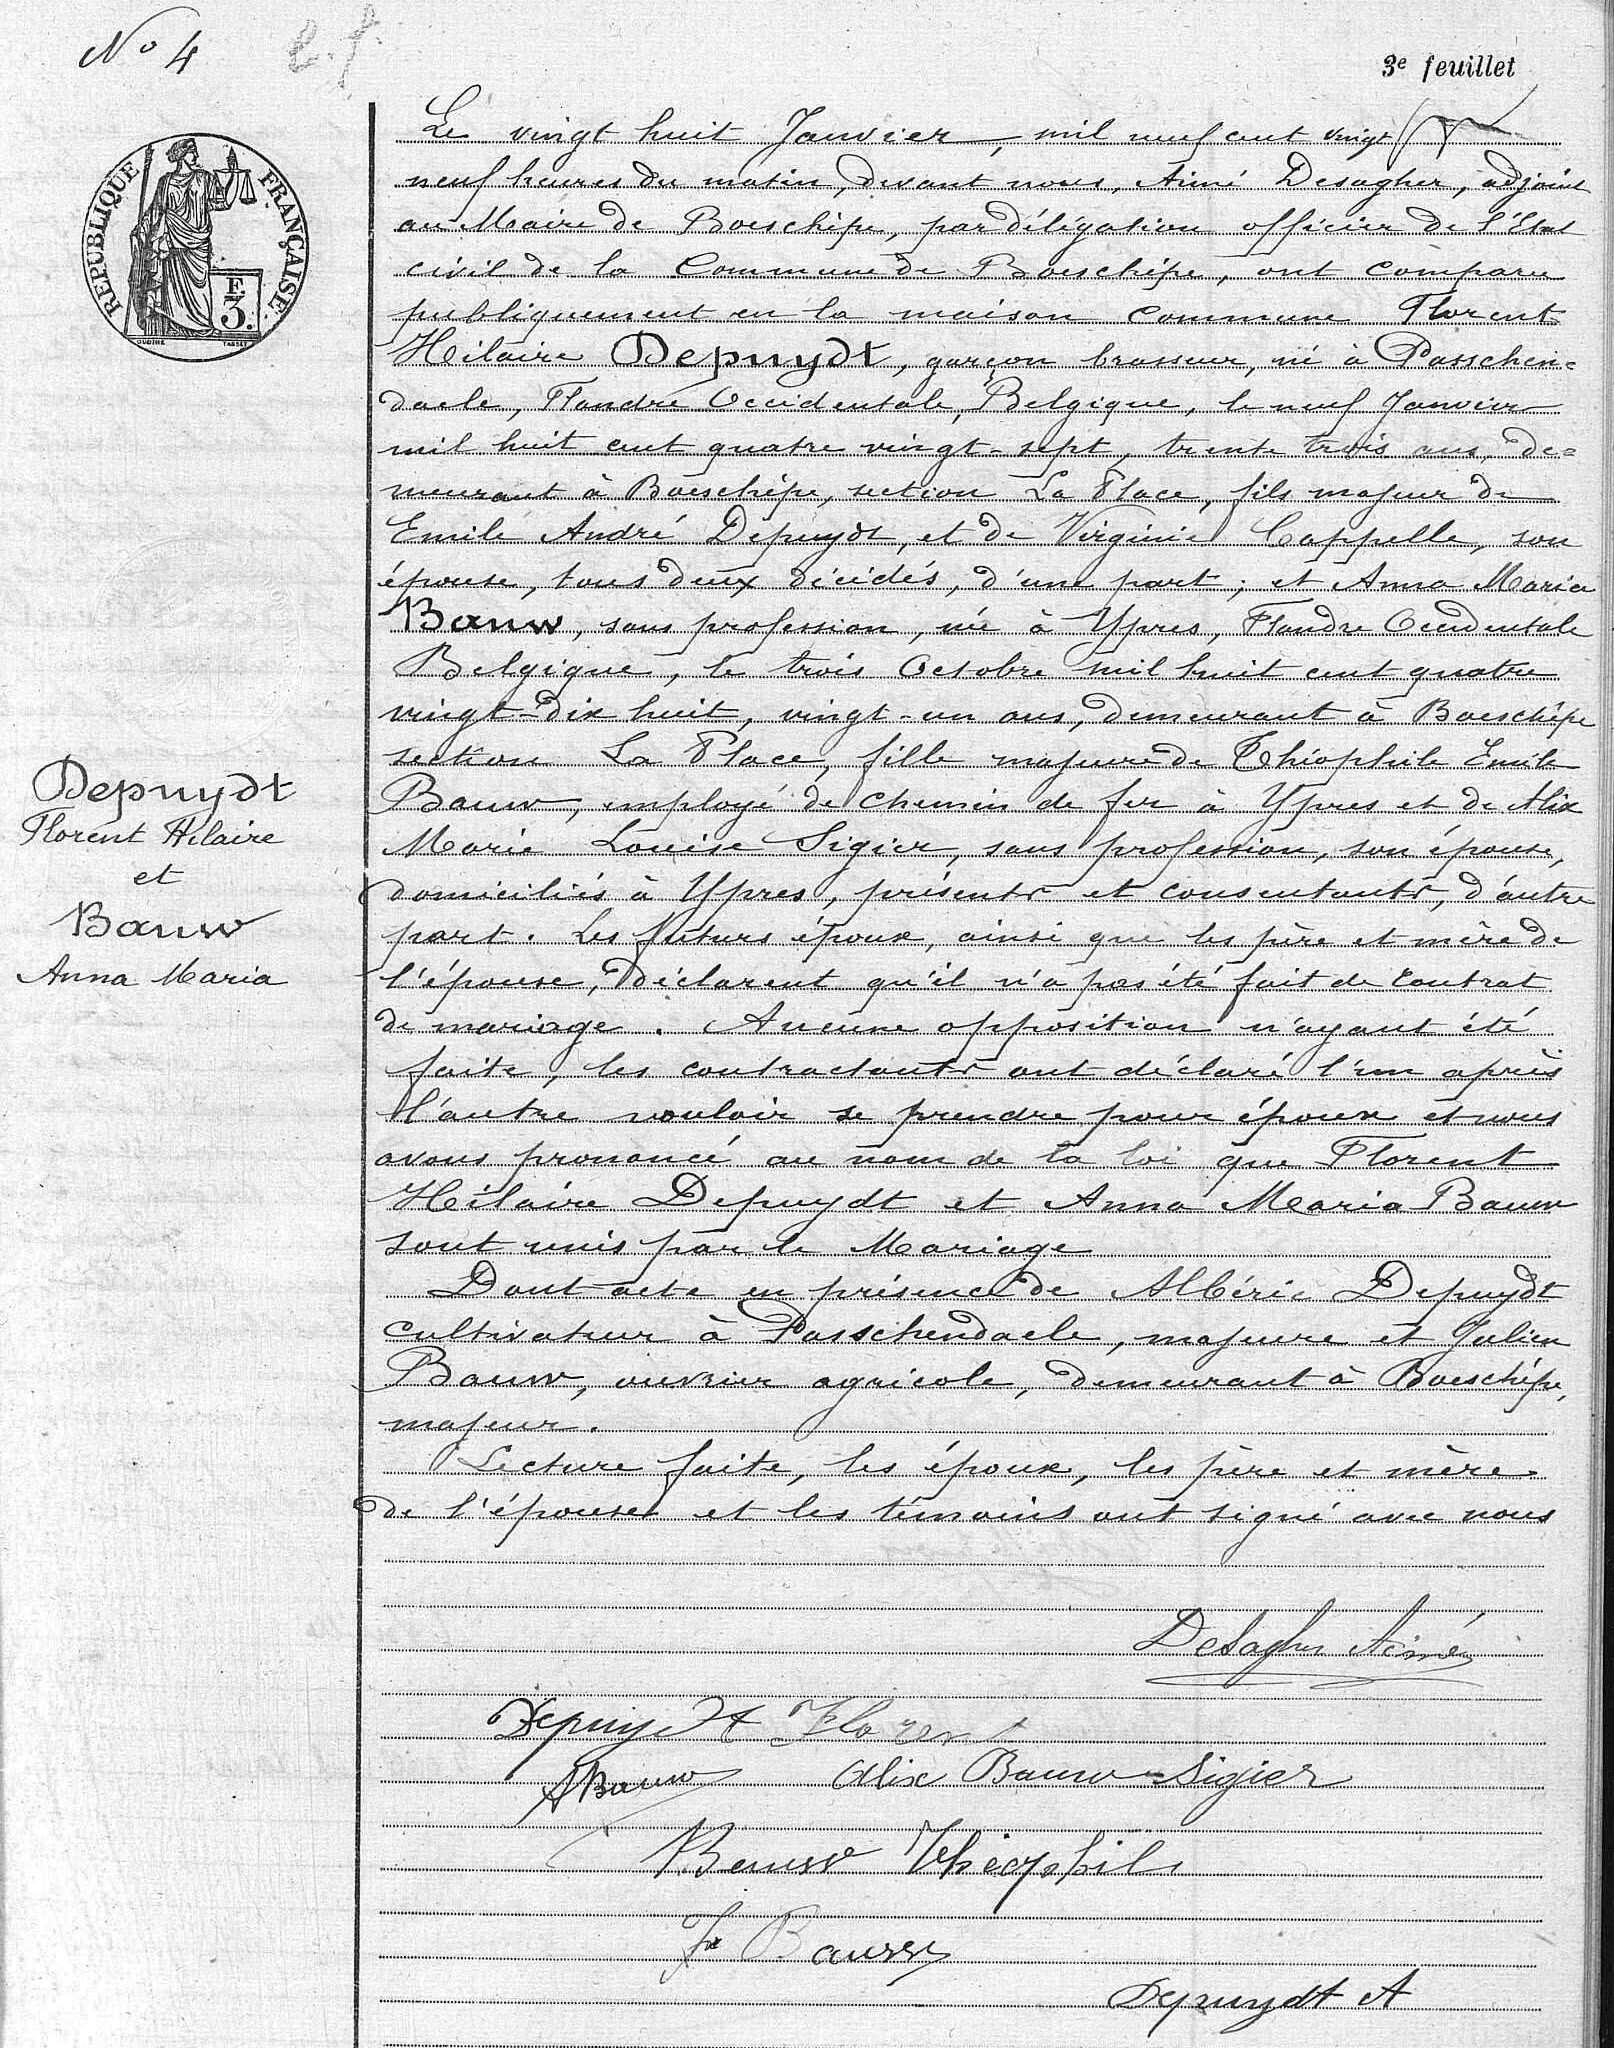 No 4
3e feuillet
RÉPUBLIQUE FRANÇAISE
F.
3.
OUDINÉ TASSET
Le vingt huit Janvier, mil neuf cent vingt
neuf heures du matin, devant nous, Aimé Desagher, adjoint
au Maire de Boeschèpe, par délégation officier de l'État
civil de la Commune de Boeschèpe, ont comparu
publiquement en la maison commune Florent
Hilaire Depuydt, garçon brasseur, né à Passchen=
daele, Flandre Occidentale, Belgique, le neuf Janvier
mil huit cent quatre vingt-sept, trente trois ans, de=
meurant à Boeschèpe, section La Place, fils majeur de
Emile André Depuydt, et de Virginie Cappelle, son
épouse, tous deux décédés, d'une part; et Anna Maria
Bauw, sans profession, née à Ypres, Flandre Occidentale
Belgique, le trois Octobre mil huit cent quatre
vingt-dix huit, vingt-un ans, demeurant à Boeschèpe
section La Place, fille majeure de Théophile Emile
Bauw, employé de chemin de fer à Ypres et de Alix
Marie Louise Sigier, sans profession, son épouse,
domiciliés à Ypres, présents et consentants, d'autre
part. Les futurs époux, ainsi que les père et mère de
l'épouse, déclarent qu'il n'a pas été fait de contrat
de mariage. Aucune opposition n'ayant été
faite, les contractants ont déclaré l'un après
l'autre vouloir se prendre pour époux et nous
avons prononcé au nom de la loi que Florent
Hilaire Depuydt et Anna Maria Bauw
sont unis par le Mariage
Dont acte en présence de Albéric Depuydt
cultivateur à Passchendaele, majeure et Julien
Bauw, ouvrier agricole, demeurant à Boeschèpe,
majeur.
Lecture faite, les époux, les père et mère
de l'épouse et les témoins ont signé avec nous
Depuydt
Florent Hilaire
et
Bauw
Anna Maria
Desagher Aimé
Depuydt Florent
A Bauw Alix Bauw-Sigier
Bauw Théophile
Bauw
Depuydt A